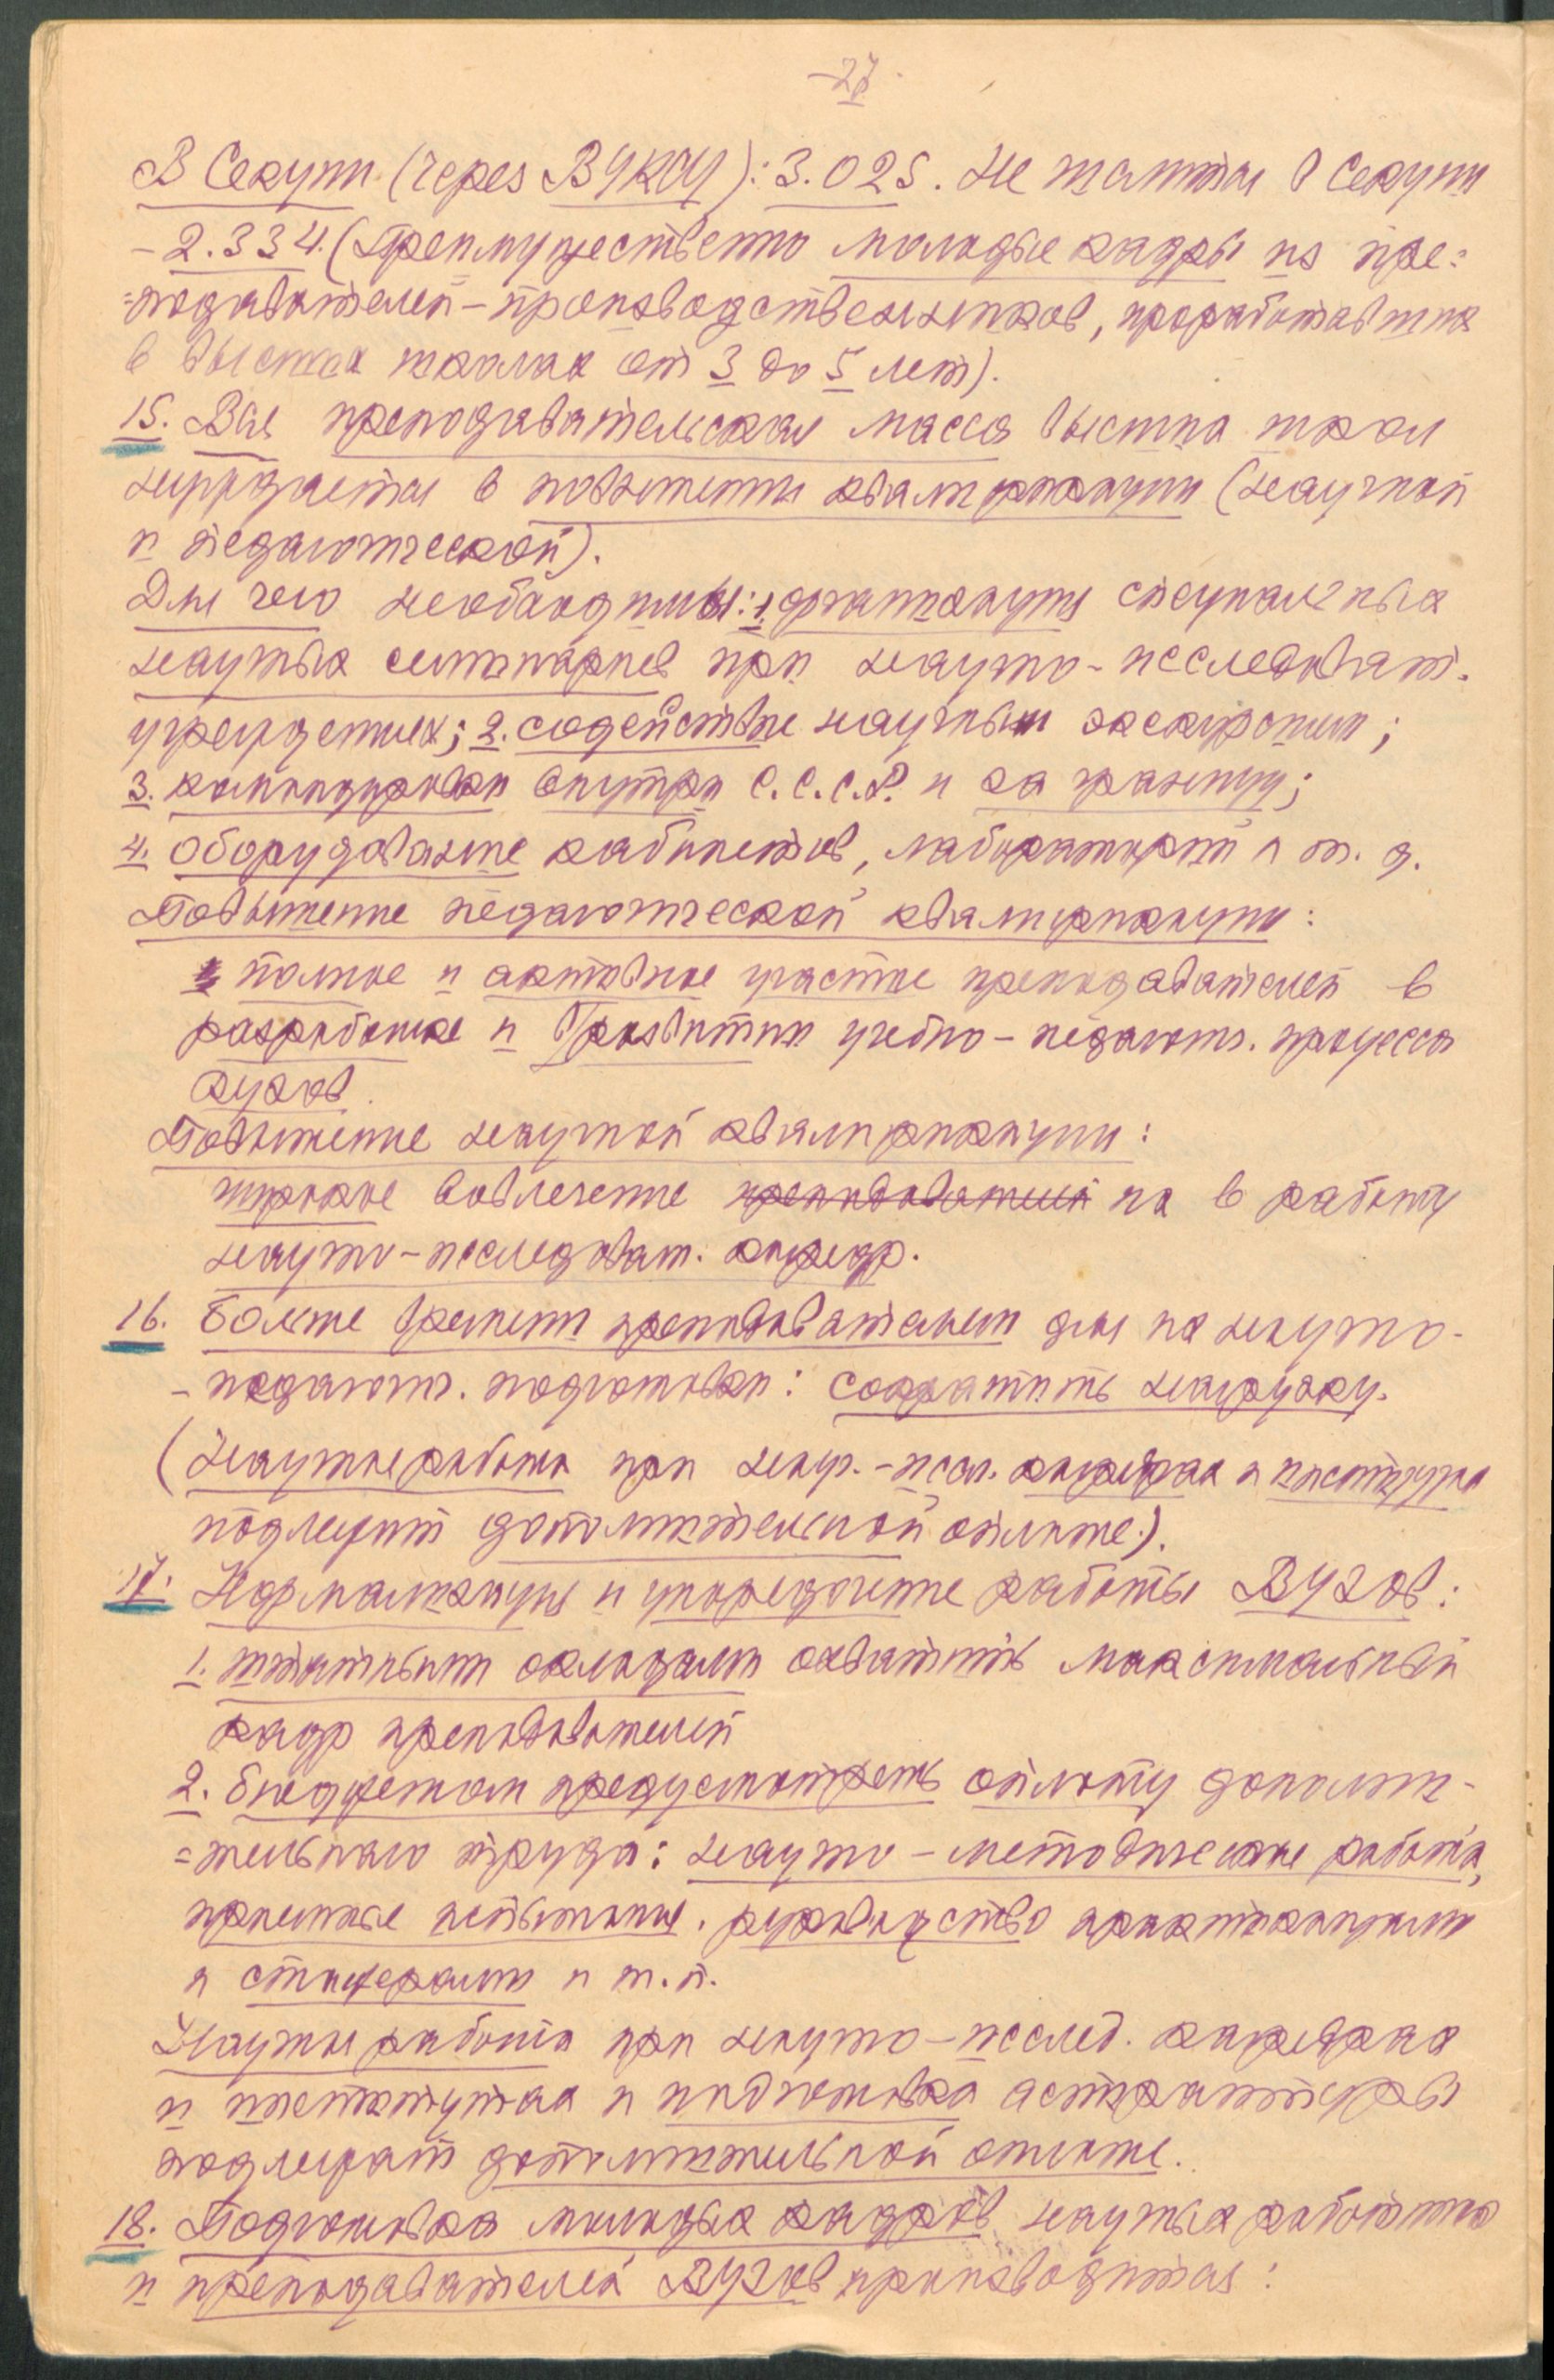 -27-
В Секции (через ВУКСУ): 3.025. Не члены Секции
-2.334. (Преимущественно молодые кадры из пре=
=подавателей-производственников, проработавших
в высших школах от 3 до 5 лет).
15. Вся преподавательская масса высших школ
нуждается в повышении квалификации (научной
и педагогической).
Для чего необходимы: 1. организация специальных
научных семинариев при научно-исследоват.
учреждениях; 2. содействие научным экскурсиям;
3. командировки внутри С.С.С.Р. и за границу;
4. оборудование кабинетов, лабораторий и т. д.
Повышение педагогической квалификации:
полное и активное участие преподавателей в
разработке и развитии учебно-педагогич. процесса
вузов.
Повышение научной квалификации:
широкое вовлечение преподавателей их в работу
научно-исследоват. кафедр.
16. Больше времени преподавателям для их научно-
-педагогич. подготовки: сократить нагрузку.
(Научные работы при науч.-иссл. кафедрах и институтах
подлежит дополнительной оплате.).
17. Нормализация и упорядочение работы ВУЗов:
1. штатным окладом охватить максимальный
кадр преподавателей
2. бюджетом предусмотреть оплату дополни-
=тельного труда: научно-методические работа,
приемные испытания, руководство практикантами
и стажерами и т. п.
Научные работа при научно-исслед. кафедрах
и институтах и подготовка аспирантуры
подлежат дополнительной оплате.
18. Подготовка молодых кадров научных работников
и преподавателей ВУЗов производится: